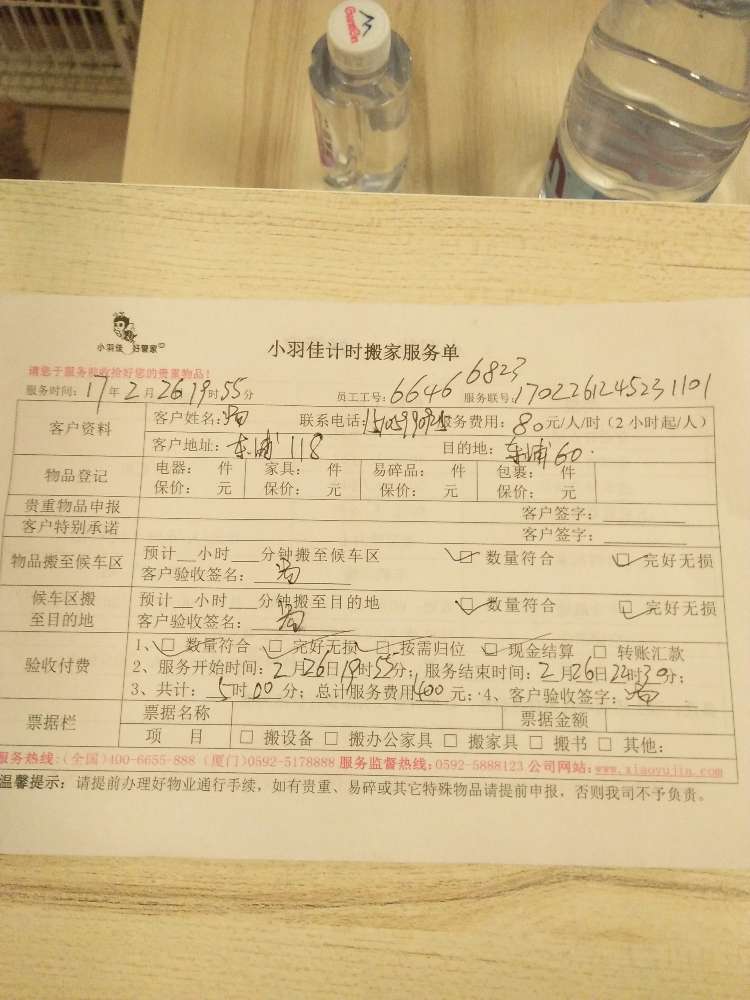 Ganten
小羽佳 好管家
小羽佳计时搬家服务单
请您于服务前收捡好您的贵重物品！
服务时间：17年2月26 19时55分 员工工号：6646 6823 服务联号：170226124523 1101
客户资料 客户姓名： 联系电话： 服务费用：80元/人/时（2小时起/人）
客户地址：东浦118 目的地：东浦60.
物品登记 电器： 件 家具： 件 易碎品： 件 包裹： 件
保价： 元 保价： 元 保价： 元 保价： 元
贵重物品申报 客户签字：
客户特别承诺 客户签字：
物品搬至候车区 预计__小时___分钟搬至候车区 ☑ 数量符合 ☑ 完好无损
客户验收签名：
候车区搬至目的地 预计__小时___分钟搬至目的地 ☑ 数量符合 ☑ 完好无损
客户验收签名：
验收付费 1、☑ 数量符合 ☑ 完好无损 ☑ 按需归位 ☑ 现金结算 □ 转账汇款
2、服务开始时间：2月26日19时55分；服务结束时间：2月26日22时30分；
3、共计：5时00分；总计服务费用400元；4、客户验收签字：
票据栏 票据名称 票据金额
项 目 □ 搬设备 □ 搬办公家具 □ 搬家具 □ 搬书 □ 其他：
服务热线：(全国)400-6655-888 (厦门)0592-5178888 服务监督热线：0592-5888123 公司网站：www.xiaoyujin.com
温馨提示：请提前办理好物业通行手续，如有贵重、易碎或其它特殊物品请提前申报，否则我司不予负责。